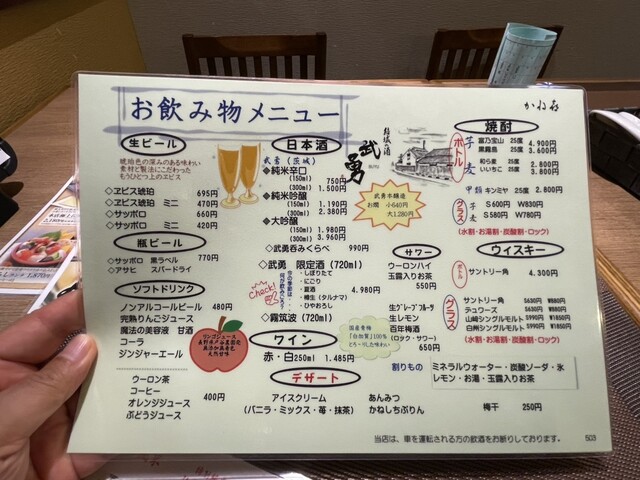 お飲み物メニュー
かね喜
生ビール
琥珀色の深みのある味わい
素材と製法にこだわった
もうひとつ上のヱビス
◇ヱビス琥珀 695円
◇ヱビス琥珀 ミニ 470円
◇サッポロ 660円
◇サッポロ ミニ 420円
瓶ビール
◇サッポロ 黒ラベル 770円
◇アサヒ スパードライ
ソフトドリンク
ノンアルコールビール 480円
完熟りんごジュース
魔法の美容液 甘酒
コーラ
ジンジャーエール
ウーロン茶
コーヒー
オレンジジュース
ぶどうジュース
400円
日本酒
武勇(茨城)
◆純米辛口
(150ml) 750円
(300ml) 1.500円
◆純米吟醸
(150ml) 1.190円
(300ml) 2.380円
◆大吟醸
(150ml) 1.980円
(300ml) 3.960円
◇武勇呑みくらべ 990円
◇武勇 限定酒 (720ml)
Check!
・しぼりたて
・にごり
・夏酒
・樽生(タルナマ)
・ひやおろし
4.980円
◇霧筑波 (720ml)
結城酒
武勇
武勇本醸造
お燗 小640円
大1.280円
ワイン
赤・白250ml 1.485円
デザート
アイスクリーム
(バニラ・ミックス・苺・抹茶)
あんみつ
かねしちぷりん
サワー
ウーロンハイ
玉露割り
550円
生グレープフルーツ
生レモン
百年梅酒
(ロック・サワー)
650円
国産葡萄
焼酎
ボトル
芋
富乃宝山 25度 4.900円
黒霧島 25度 3.600円
麦
和ら麦 25度 2.800円
いいちこ 25度 3.800円
甲類 キンミヤ 25度 2.800円
グラス
芋 S600円 W830円
麦 S580円 W780円
(水割・お湯割・炭酸割・ロック)
ウィスキー
ボトル
サントリー角 4.300円
グラス
サントリー角 S630円 W880円
デュワーズ S630円 W880円
山崎シングルモルト S990円 W1850円
白州シングルモルト S990円 W1850円
(水割・お湯割・炭酸割・ロック)
割りもの
ミネラルウォーター・炭酸ソーダ・氷
レモン・お湯・玉露入りお茶
梅干 250円
当店は、車を運転される方の飲酒をお断りしております。
503